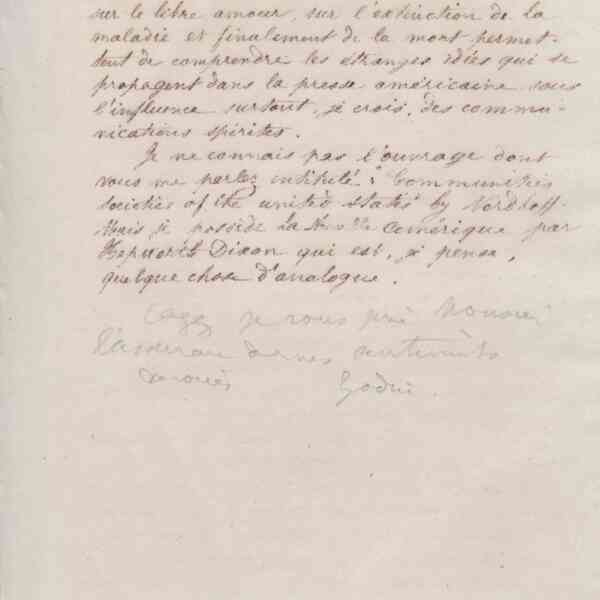 sur le libre amour, sur l'extinction de la
maladie et finalement de la mort permet-
tent de comprendre les étranges idées qui se
propagent dans la presse américaine sous
l'influence surtout, je crois, des commu-
nications spirites.
Je ne connais pas l'ouvrage dont
vous me parlez intitulé: "Communistic
societies of the united states" by Nordhoff.
Mais je possède la Nouvelle Amérique par
Hepworth Dixon qui est, je pense,
quelque chose d'analogue.
je vous prie Monsieur
l'assurance de mes sentiments
dévoués Godin.